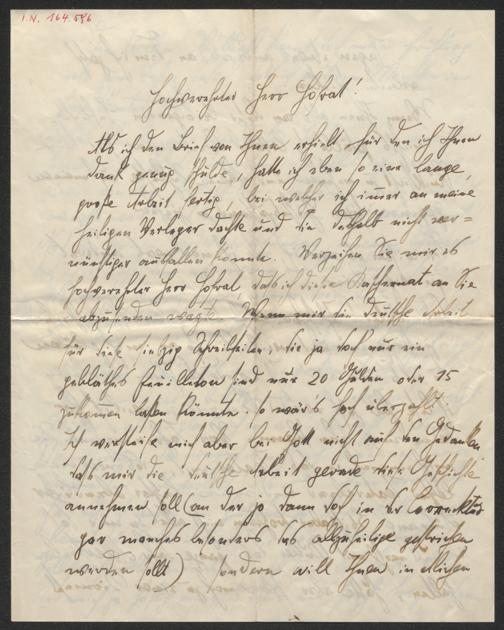 I.N. 164.586
Hochverehrter Herr Hofrat!
Als ich den Brief von Ihnen erhielt für den ich Ihnen
Dank genug schulde, hatte ich eben so eine lange,
große Arbeit fertig, bei welcher ich immer an meine
heiligen Verleger dachte und die deshalb nicht ver=
nünftiger ausfallen konnte. Verzeihen Sie mir es
hochverehrter Herr Hofrat daß ich diese an Sie
abzusenden wagte. Wenn mir die deutsche Arbeit
für diese einzige, die ja doch nur ein
Feuilleton sind nur 20 Gulden oder 15
zukommen lassen könnte. so wär's hoch überzahlt.
Ich versteife mich aber bei Gott nicht auf den Gedanken
daß mir die deutsche Arbeit gerade diese Geschichte
annehmen soll (an der ja dann doch in der Correctur
gar manches besonders das allzuheilige gestrichen
werden sollt) sondern will Ihnen in etlichen